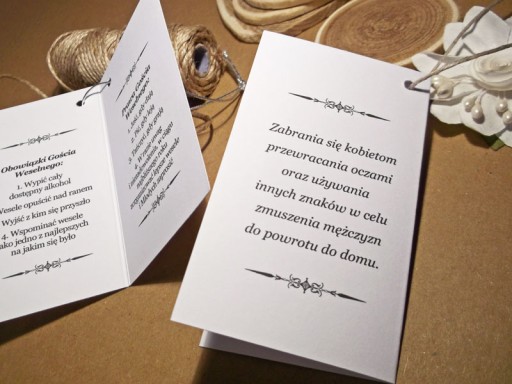 Obowiązki Gościa
Weselnego:
1. Wypić cały
dostępny alkohol
Wesele opuścić nad ranem
Wyjść z kim się przyszło
4. Wspominać wesele
jako jedno z najlepszych
na jakim się było
Prawa Gościa
Weselnego:
1. Jeść, gdy dają
2. Pić, gdy leją
3. Tańczyć, gdy grają
Zabrania się kobietom
przewracania oczami
oraz używania
innych znaków w celu
zmuszenia mężczyzn
do powrotu do domu.